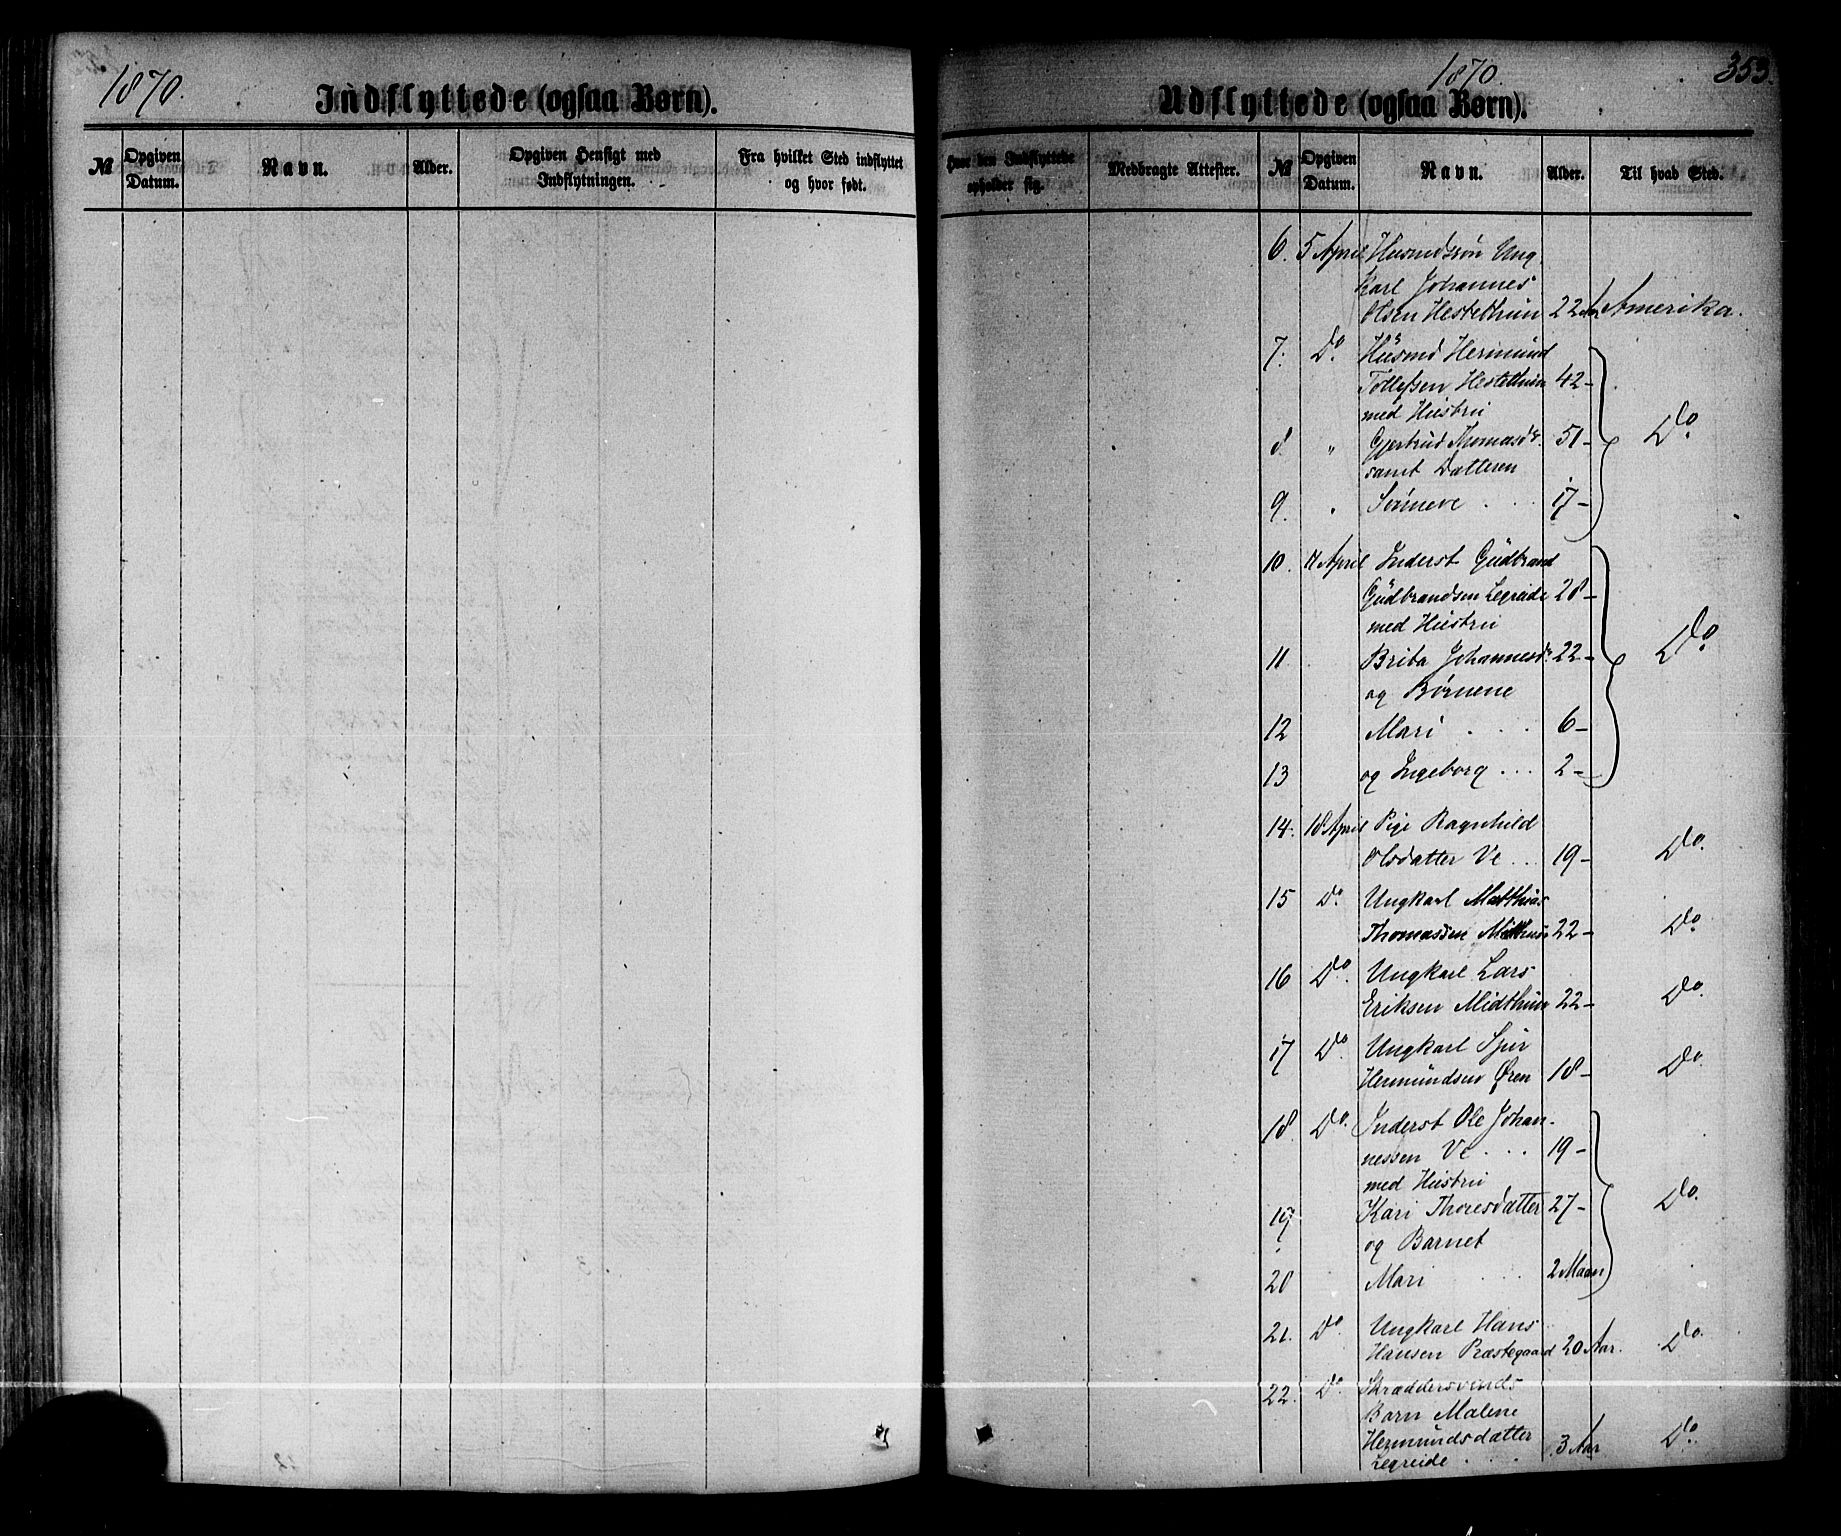 1870.
Indflyttede (ogsaa Børn).
№
Opgiven Datum.
Navn.
Alder.
Opgiven Hensigt med Indflytningen.
Fra hvilket Sted indflyttet og hvor født.
1870.
353.
Udflyttede (ogsaa Børn).
Hvor den Indflyttede opholder sig.
Medbragte Attester.
№
Opgiven Datum.
Navn.
Alder.
Til hvad Sted.
6. 5 April Husmdssøn Ung
karl Johannes
Olsen Hestethun 22 Aar Amerika.
7. Do. Husmd Hermund
Tollefsen Hestethun 42–
med Hustru
8 " Gjertrud Thomasdr. 51– Do.
samt Datteren
9. " Sønneve . . . 17–
10. 11 April Inderst Gudbrand
Gudbrandsen Legreide 28–
med Hustru
11 Brita Johannesdr. 22– Do.
og Børnene
12 Mari . . . 6–
13 og Ingeborg . . . 2–
14. 18 April Pige Ragnhild
Olsdatter Ve . . 19– Do.
15 Do. Ungkarl Matthias
Thomassen Midthun 22– Do.
16 Do. Ungkarl Lars
Eriksen Midthun 22– Do.
17 Do. Ungkarl Sjur
Hermundsen Øren 18– Do.
18. Do. Inderst Ole Johan-
nessen Ve . . . 19–
med Hustru
19 Kari Thoresdatter 27– Do.
og Barnet
20 Mari . . . 2 Maan
21. Do. Ungkarl Hans
Hansen Præstegaard 20 Aar. Do.
22. Do. Skræddersvends
Barn Malene
Hermundsdatter 3 Aar Do.
Legreide . . .